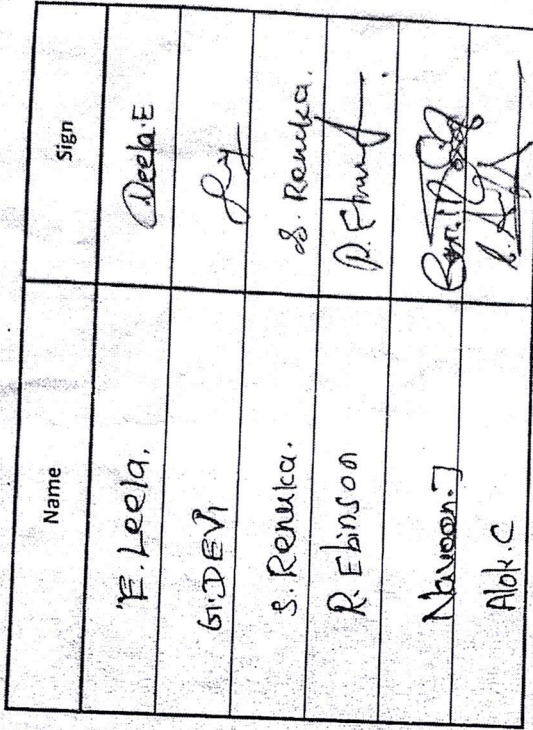 Name Sign
E. Leela. Leela.E
G.DEVI
S. Renuka. S. Renuka.
R. Ebinson
Naveen.J
Alok.C